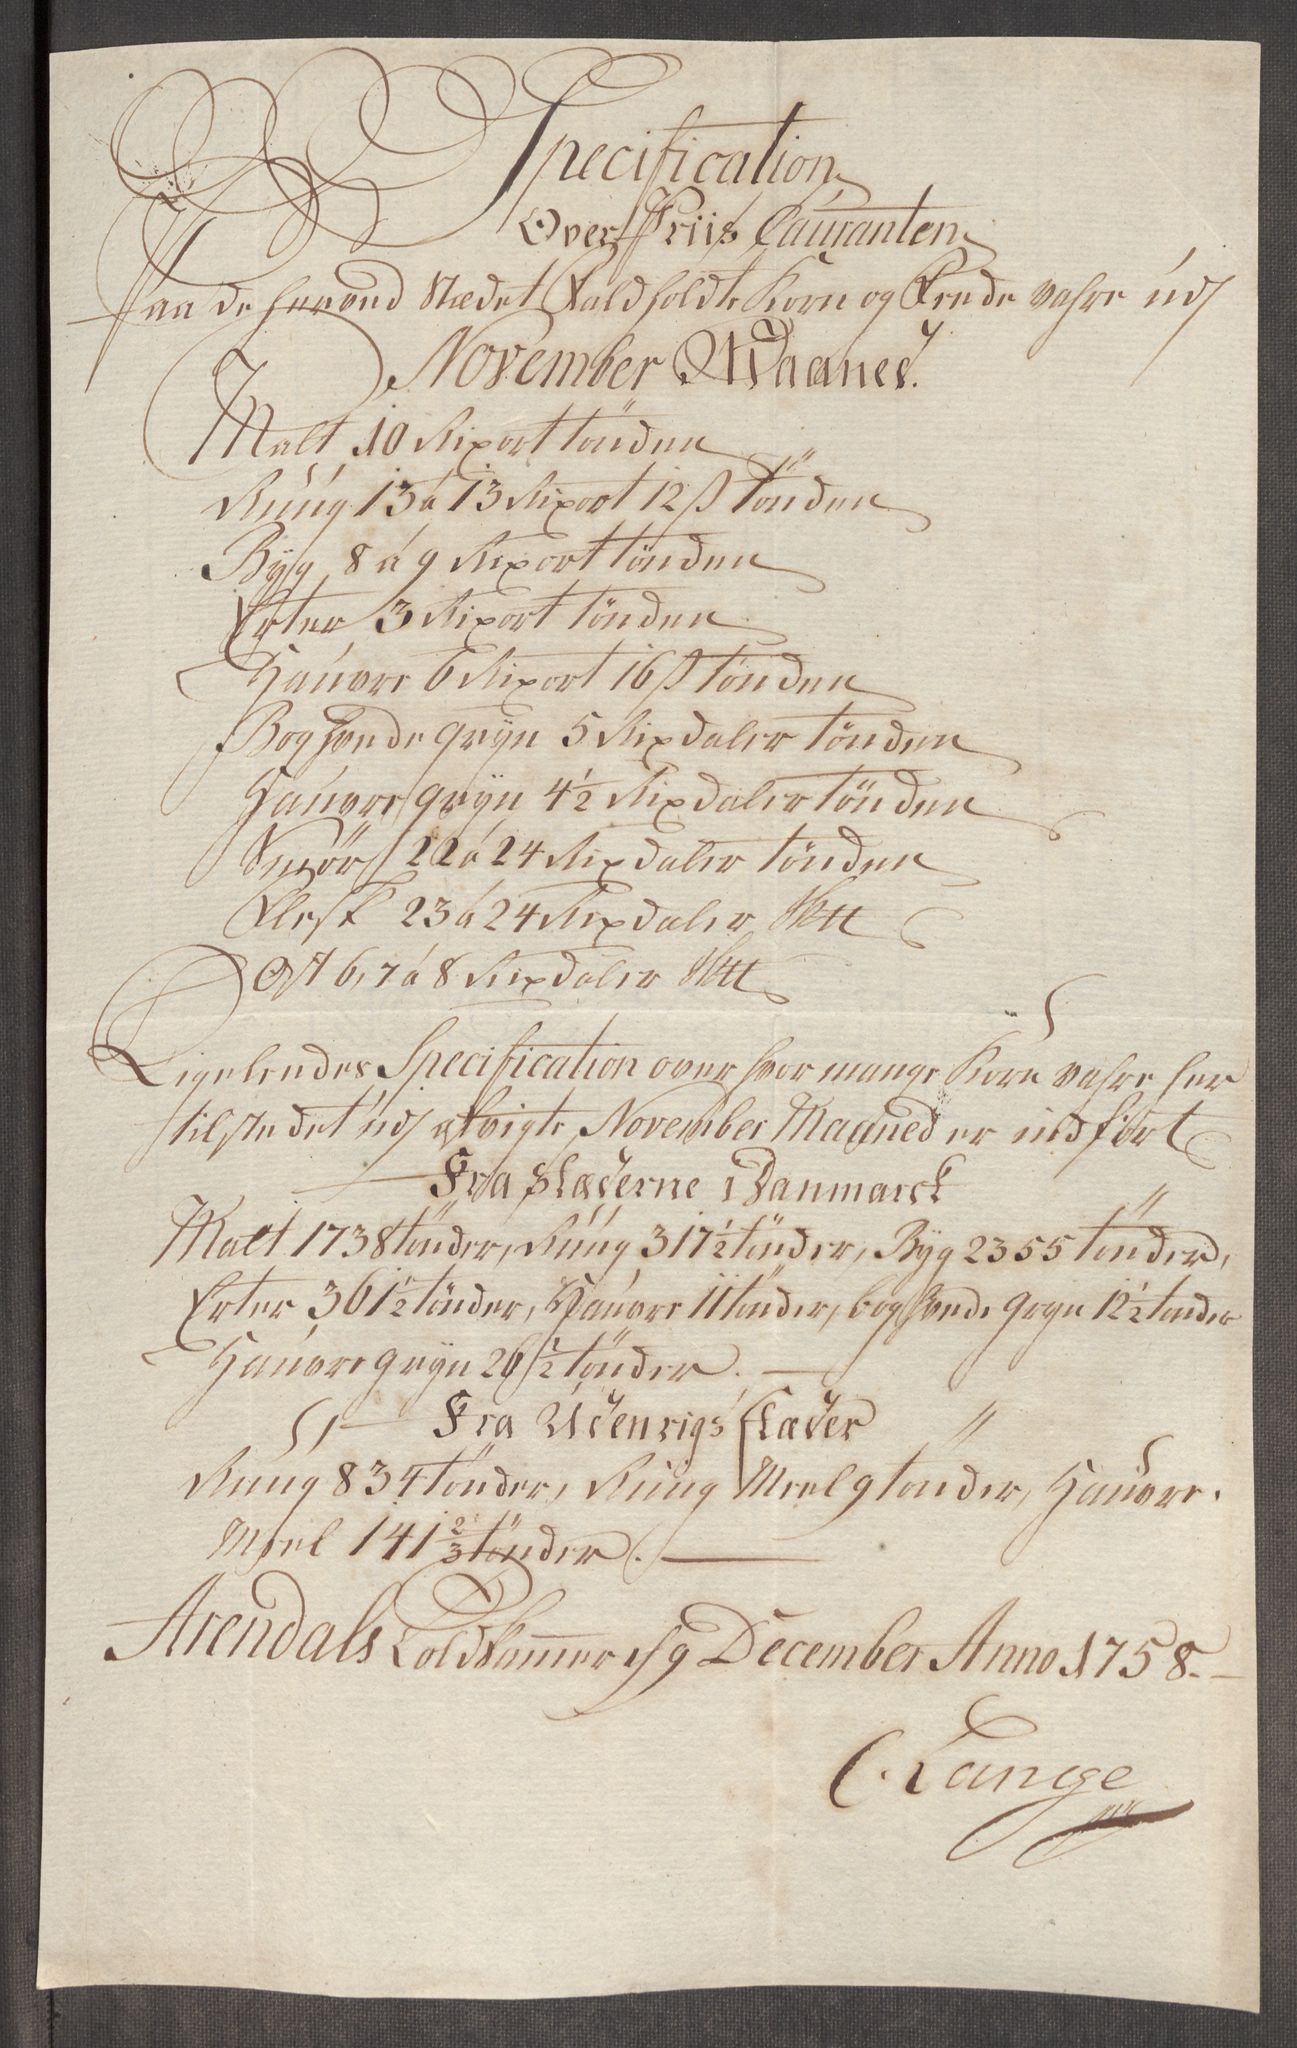 Specification
Over Priis Couranten
Paa de her ved Stædet Faldholdte Korn og Fende vahre udj
November Maaned.
Malt 10 Rixort tönden
Rúúg 13 á 13 Rixort 12 ß tönden
Byg 8 á 9 Rixort tönden
Erter 3 Rixort tönden
Haúvre 6 Rixort 16 ß tönden
Boghvede gryn 5 Rixdaler tönden
Haúvre gryn 4½ Rixdaler tönden
Smör 22 á 24 Rixdaler tönden
Flesk 23 á 24 Rixdaler
Ost 6, 7 á 8 Rixdaler
Ligeledes Specification over hvor mange Korn vahre her
til stædet udj afvigte November Maaned er indfört
Fra Stæderne i Danmarck
Malt 1738 tönder, Rúúg 317½ tönder, Byg 2355 tönder,
Erter 361½ tönder, Haúvre 11 tönder, boghvede gryn 12½ tönder
Haúvre gryn 26½ tönder. —
Fra Udenrigs Stæder
Rúúg 834 tönder, Rúúg Meel 9 tönder, Haúvre
Meel 141⅔ tönder. —
Arendals Toldkammer d 9 December Anno 1758. —
C. Lange